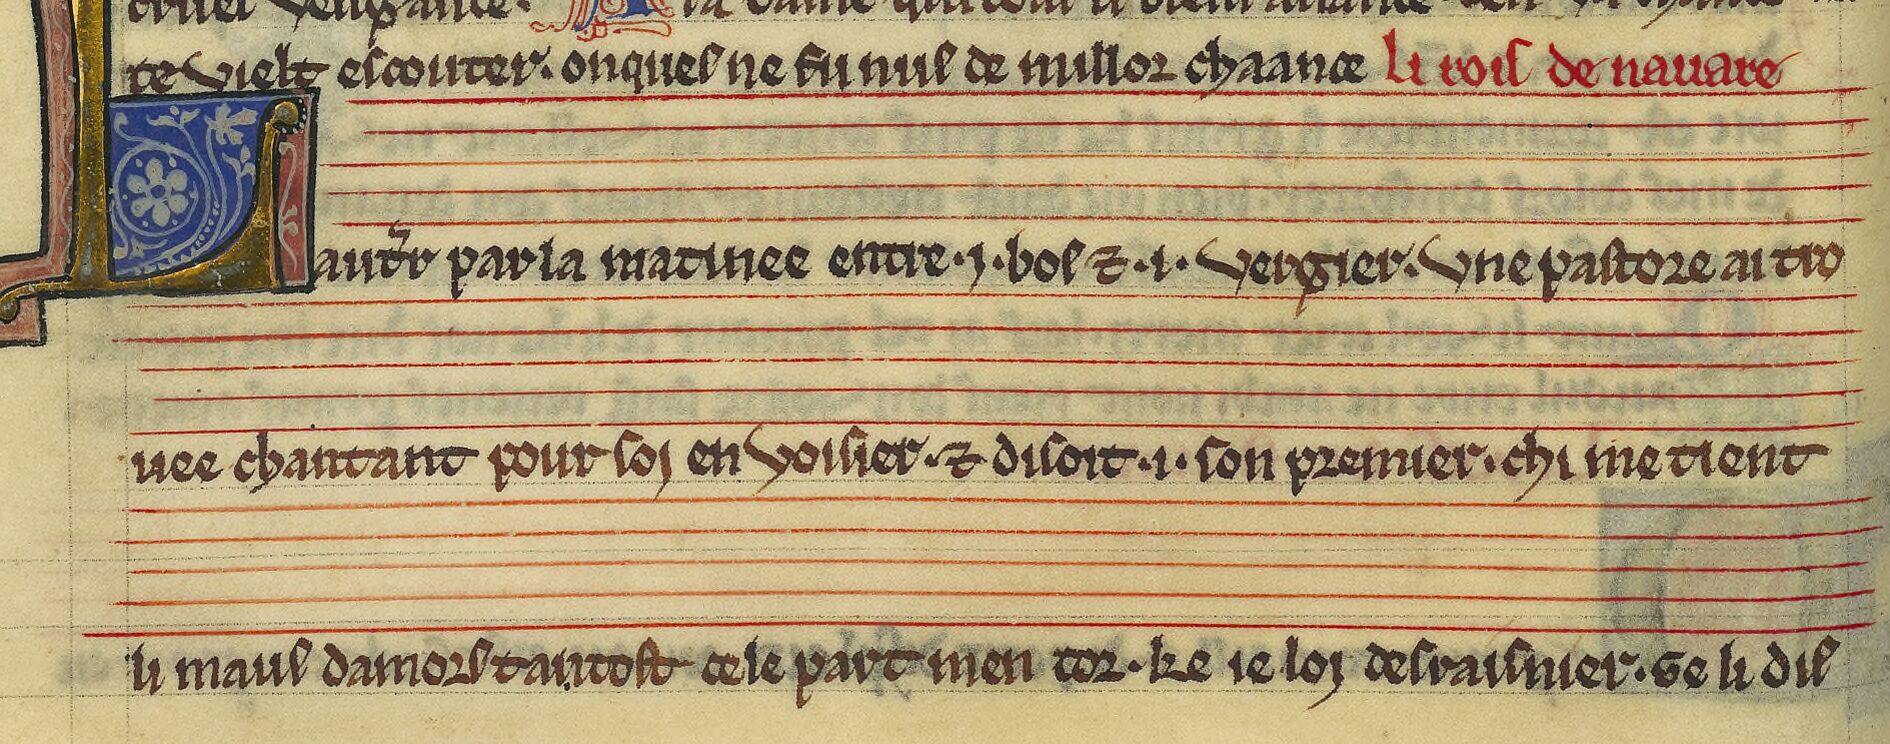 te vielt escouter. onques ne fu nus de millor chaance li rois de nauare
Lautr̄ par la matinee entre .j. bos ⁊ .i. vergier. vne pastore ai tro
uee chantant pour soj en voisier. ⁊ disoit .i. son premier. chi me tient
li maus damors tantost cele part men tor. ke ie loj desraisnier. Ge li dis